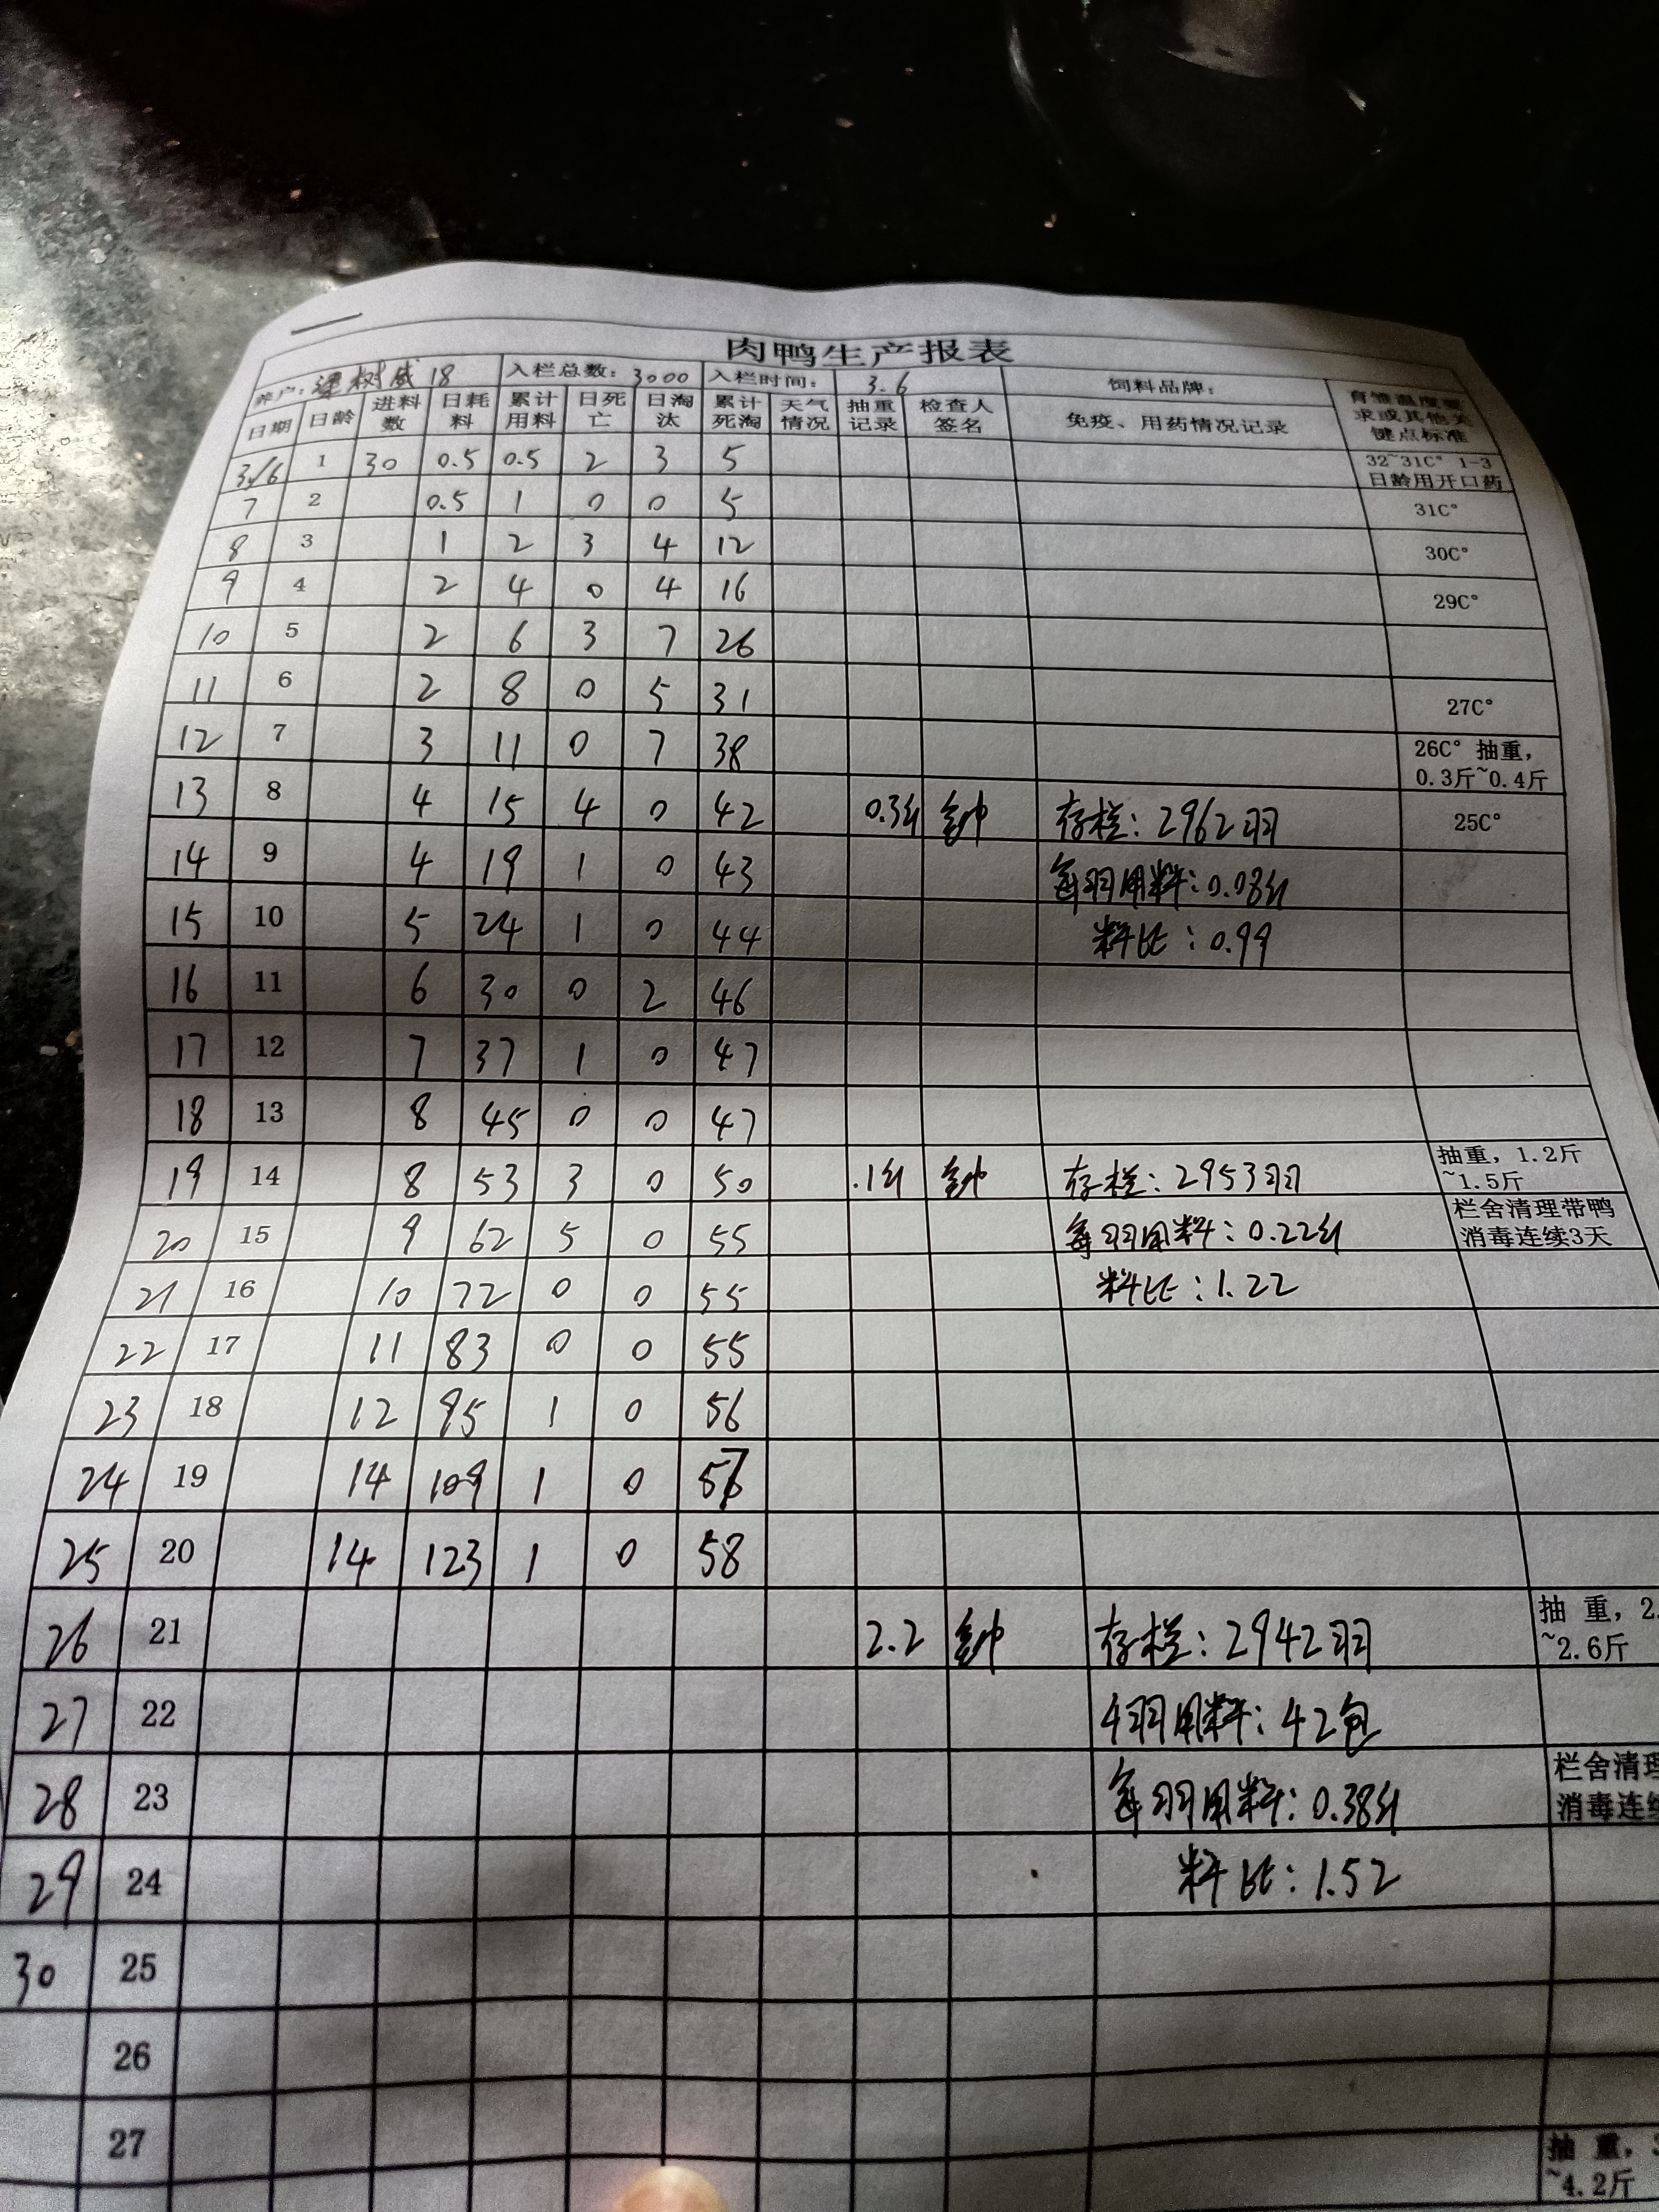 肉鸭生产报表
养户: 树威 18 入栏总数: 3000 入栏时间: 3.6 饲料品牌:
日期 日龄 进料数 日耗料 累计用料 日死亡 日淘汰 累计死淘 天气情况 抽重记录 检查人签名 免疫、用药情况记录 育雏温度要求或其他关键点标准
3/6 1 30 0.5 0.5 2 3 5 32~31C° 1-3日龄用开口药
7 2 0.5 1 0 0 5 31C°
8 3 1 2 3 4 12 30C°
9 4 2 4 0 4 16 29C°
10 5 2 6 3 7 26
11 6 2 8 0 5 31 27C°
12 7 3 11 0 7 38 26C° 抽重,0.3斤~0.4斤
13 8 4 15 4 0 42 0.3斤 钟 存栏: 2962羽 25C°
14 9 4 19 1 0 43 每羽用料: 0.08斤
15 10 5 24 1 0 44 料比: 0.99
16 11 6 30 0 2 46
17 12 7 37 1 0 47
18 13 8 45 0 0 47
19 14 8 53 3 0 50 .1斤 钟 存栏: 2953羽 抽重,1.2斤~1.5斤
20 15 9 62 5 0 55 每羽用料: 0.22斤 栏舍清理带鸭消毒连续3天
21 16 10 72 0 0 55 料比: 1.22
22 17 11 83 0 0 55
23 18 12 95 1 0 56
24 19 14 109 1 0 57
25 20 14 123 1 0 58
26 21 2.2 钟 存栏: 2942羽 抽重,2.~2.6斤
27 22 羽用料: 42包
28 23 每羽用料: 0.38斤 栏舍清理消毒连续
29 24 料比: 1.52
30 25
26
27 抽重,3~4.2斤